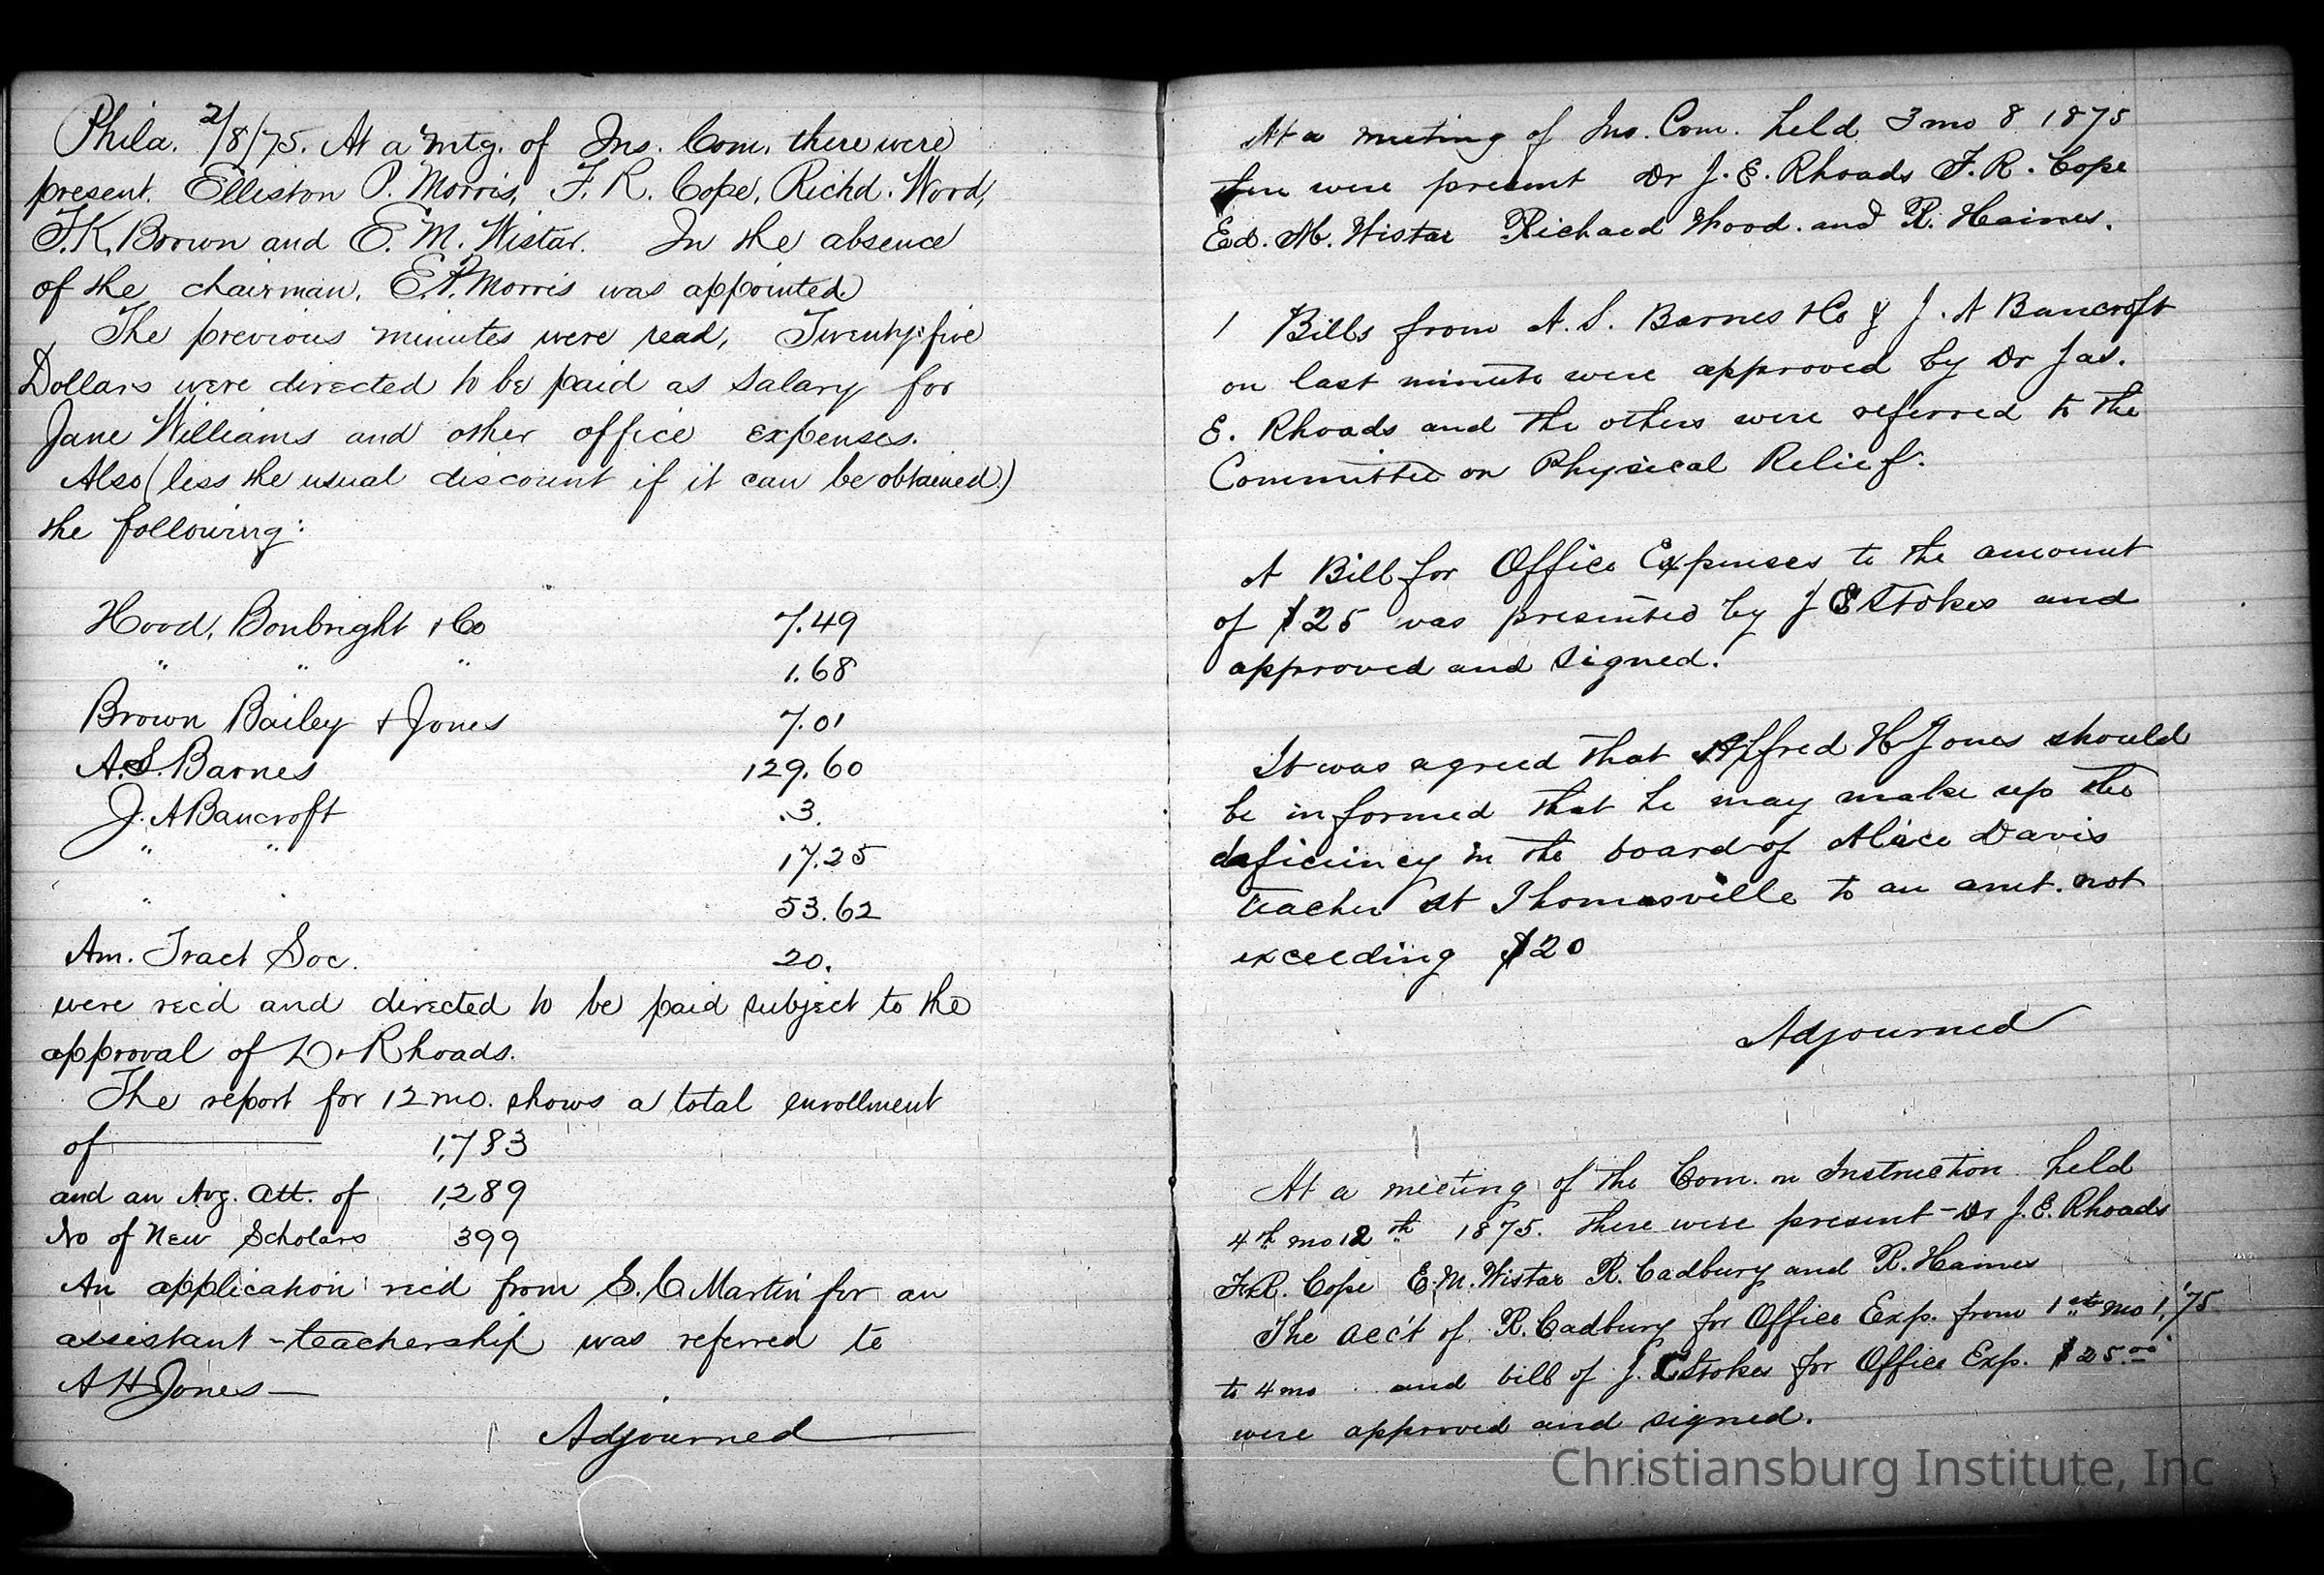 Phila. 2/8/75. At a mtg. of Ins. Com. there were
present. Elliston P. Morris, F. R. Cope, Richd. Wood,
T.K. Brown and E. M. Wistar. In the absence
of the chairman, E.P. Morris was appointed
The previous minutes were read, Twenty-five
Dollars were directed to be paid as salary for
Jane Williams and other office expenses.
Also (less the usual discount if it can be obtained.)
the following:
Hood, Bonbright & Co 7.49
" " " 1.68
Brown Bailey & Jones 7.01
A.S. Barnes 129.60
J. A Bancroft .3.
" " 17.25
" 53.62
Am. Tract Soc. 20.
were rec'd and directed to be paid subject to the
approval of Dr Rhoads.
The report for 12 mo. shows a total enrollment
of 1,783
and an Avg. att. of 1,289
No of New Scholars 399
An application rec'd from S. C Martin for an
assistant-teachership was referred to
A H Jones—
Adjourned
At a meeting of Ins. Com. held 3 mo 8 1875
there were present Dr J. E. Rhoads F. R. Cope
Ed. M. Wistar Richard Wood. and R. Haines.
1 Bills from A. S. Barnes & Co & J. A Bancroft
on last minute were approved by Dr Jas.
E. Rhoads and the others were referred to the
Committee on Physical Relief.
A Bill for Office Expenses to the amount
of $25 was presented by J S Stokes and
approved and signed.
It was agreed that Alfred H Jones should
be informed that he may make up the
deficiency in the board of Alice Davis
teacher at Thomasville to an amt. not
exceeding $20
Adjourned
At a meeting of the Com. on Instruction held
4th mo 12th 1875. there were present - Dr J. E. Rhoads
F.R. Cope E. M. Wistar R. Cadbury and R. Haines
The acc't of R. Cadbury for Office Exp. from 1st mo 1, '75
to 4 mo and bill of J. Stokes for Office Exp. $25.00
were approved and signed.
Christiansburg Institute, Inc